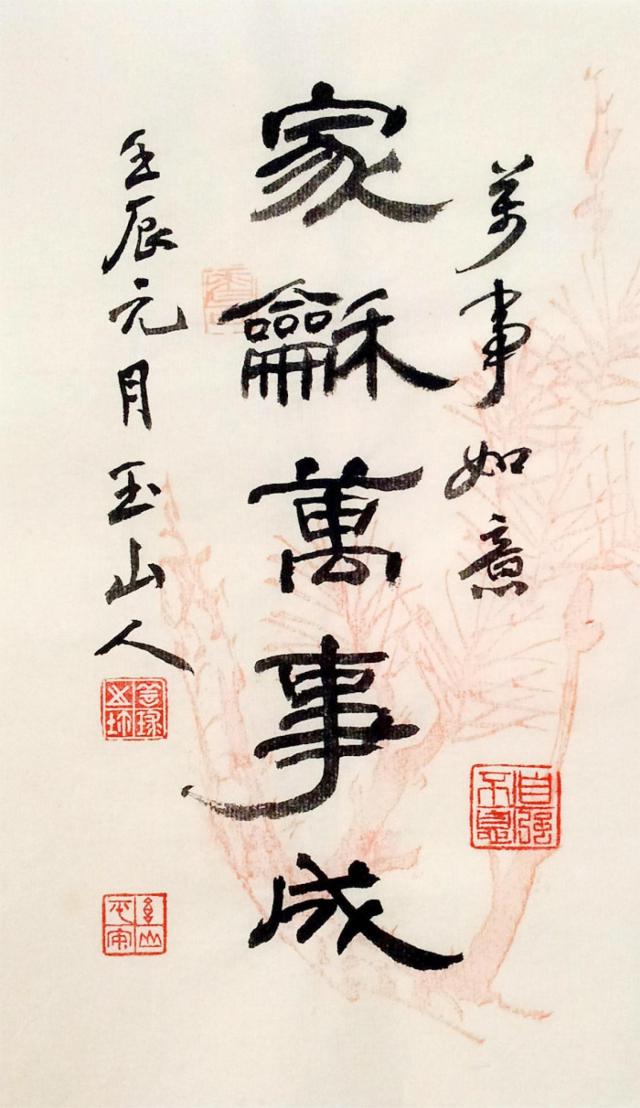 萬事如意
家龢萬事成
壬辰元月玉山人
自强不息